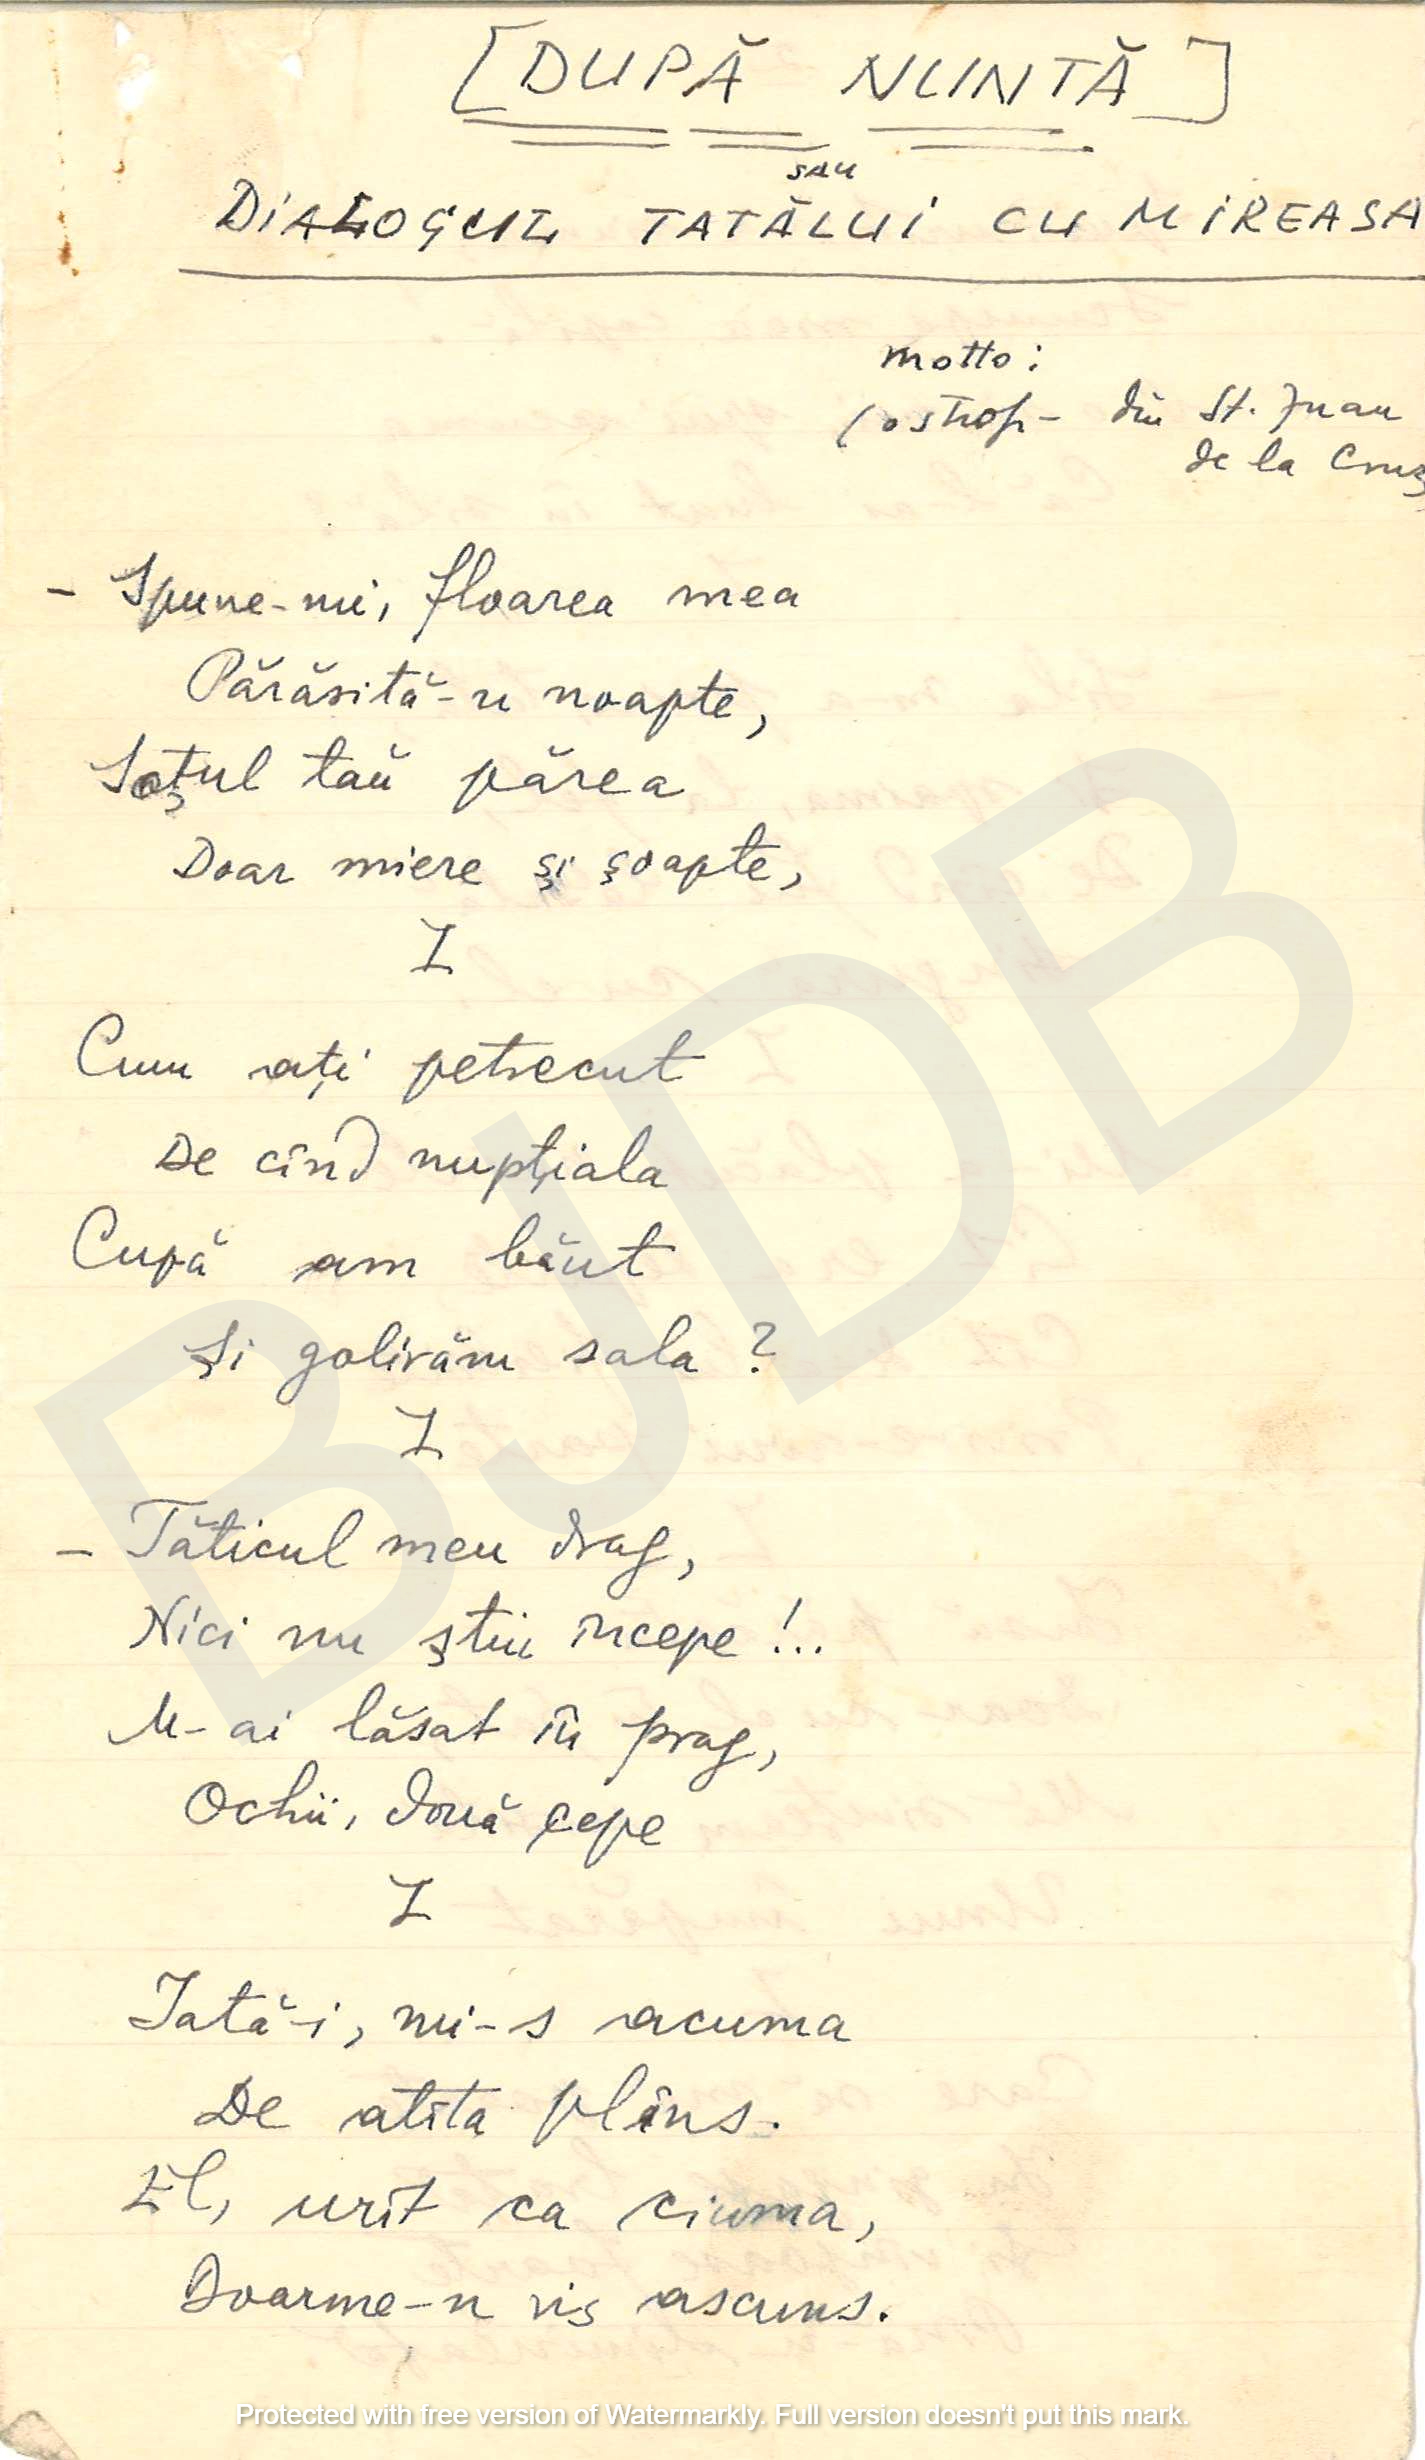 [DUPĂ NUNTĂ]
sau
DIALOGUL TATĂLUI CU MIREASA
motto:
(o strof- din St. Juan
de la Cruz
- Spune-mi, floarea mea
Părăsită-n noapte,
Soțul tău părea
Doar miere și șoapte,
I
Cum ați petrecut
De cînd nupțiala
Cupă am băut
Și golirăm sala ?
I
- Tăticul meu drag,
Nici nu știu începe !..
M-ai lăsat în prag,
Ochii, două cepe
I
Iată-i, mi-s acuma
De atîta plîns.
El, urît ca ciuma,
Doarme-n vis ascuns.
BJDB
Protected with free version of Watermarkly. Full version doesn't put this mark.